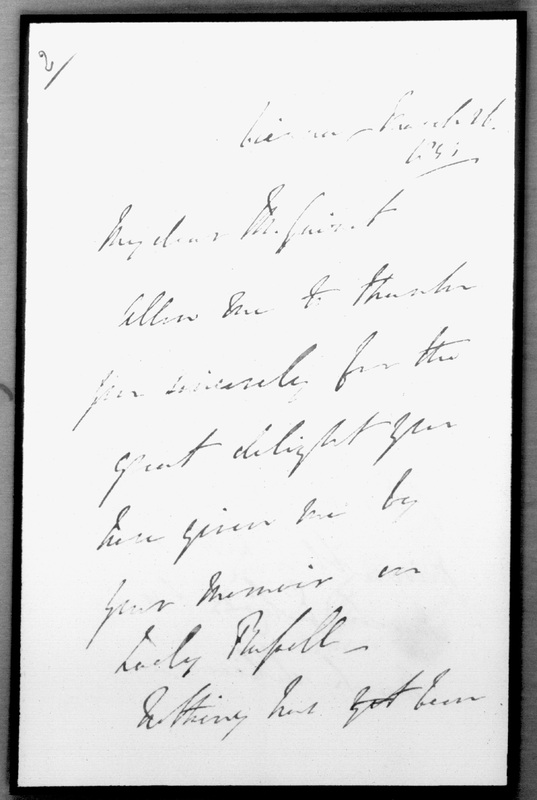 2/
Vienna - March 16.
My dear M. Guizot
Allow me to thank
you sincerely for the
great delight you
have given me by
your memoir on
Lady Russell -
Nothing has yet been